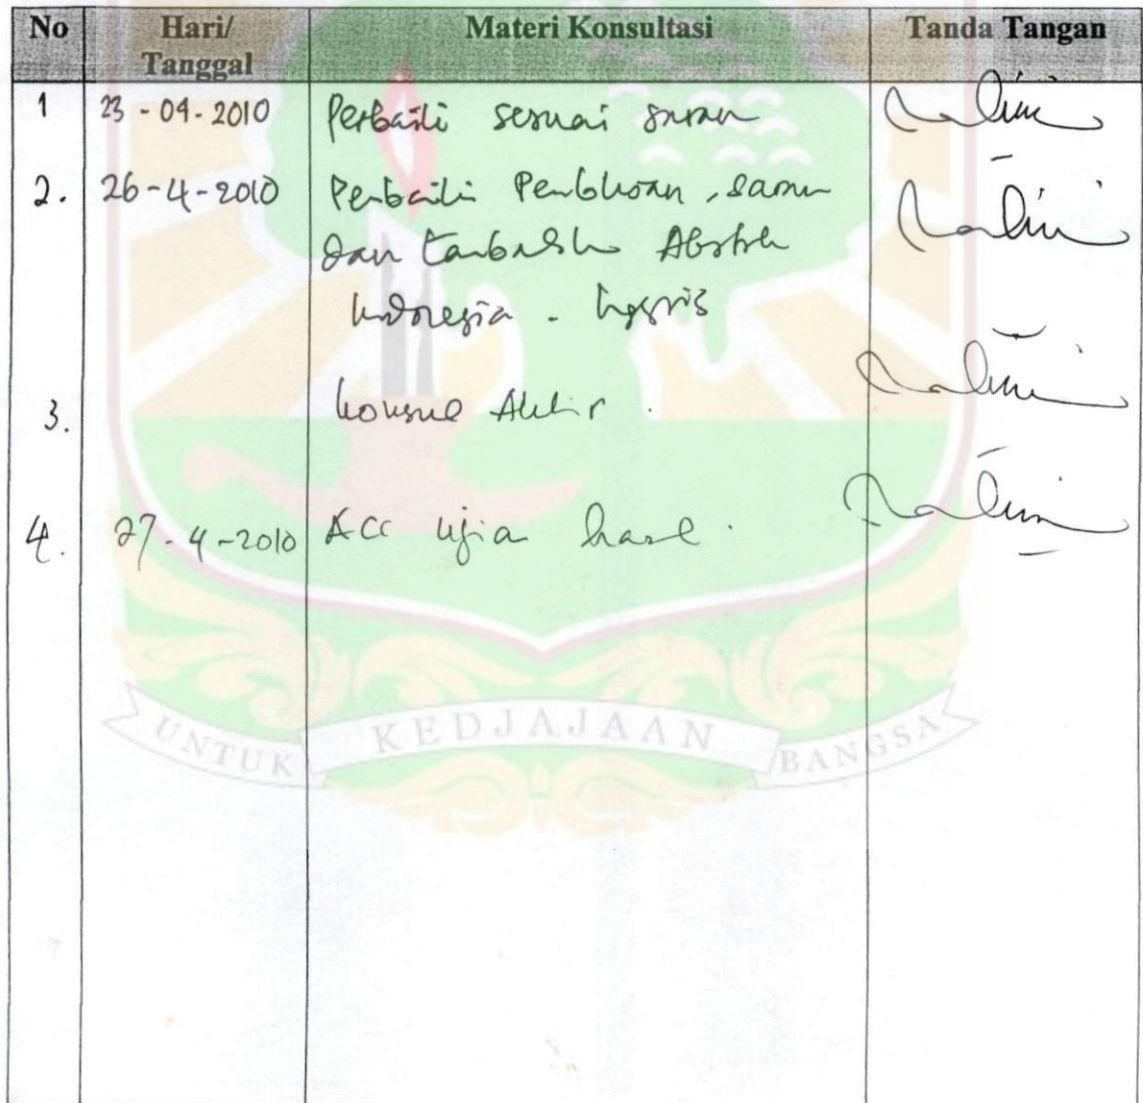 No Hari/ Materi Konsultasi Tanda Tangan
Tanggal
1 23-04-2010 Perbaiki sesuai saran
2. 26-4-2010 Perbaiki Pembahasan, saran
dan tambahkan Abstrak
Indonesia - Inggris
3. konsul Akhir.
4. 27-4-2010 Acc ujian hasil.
UNTUK KEDJAJAAN BANGSA